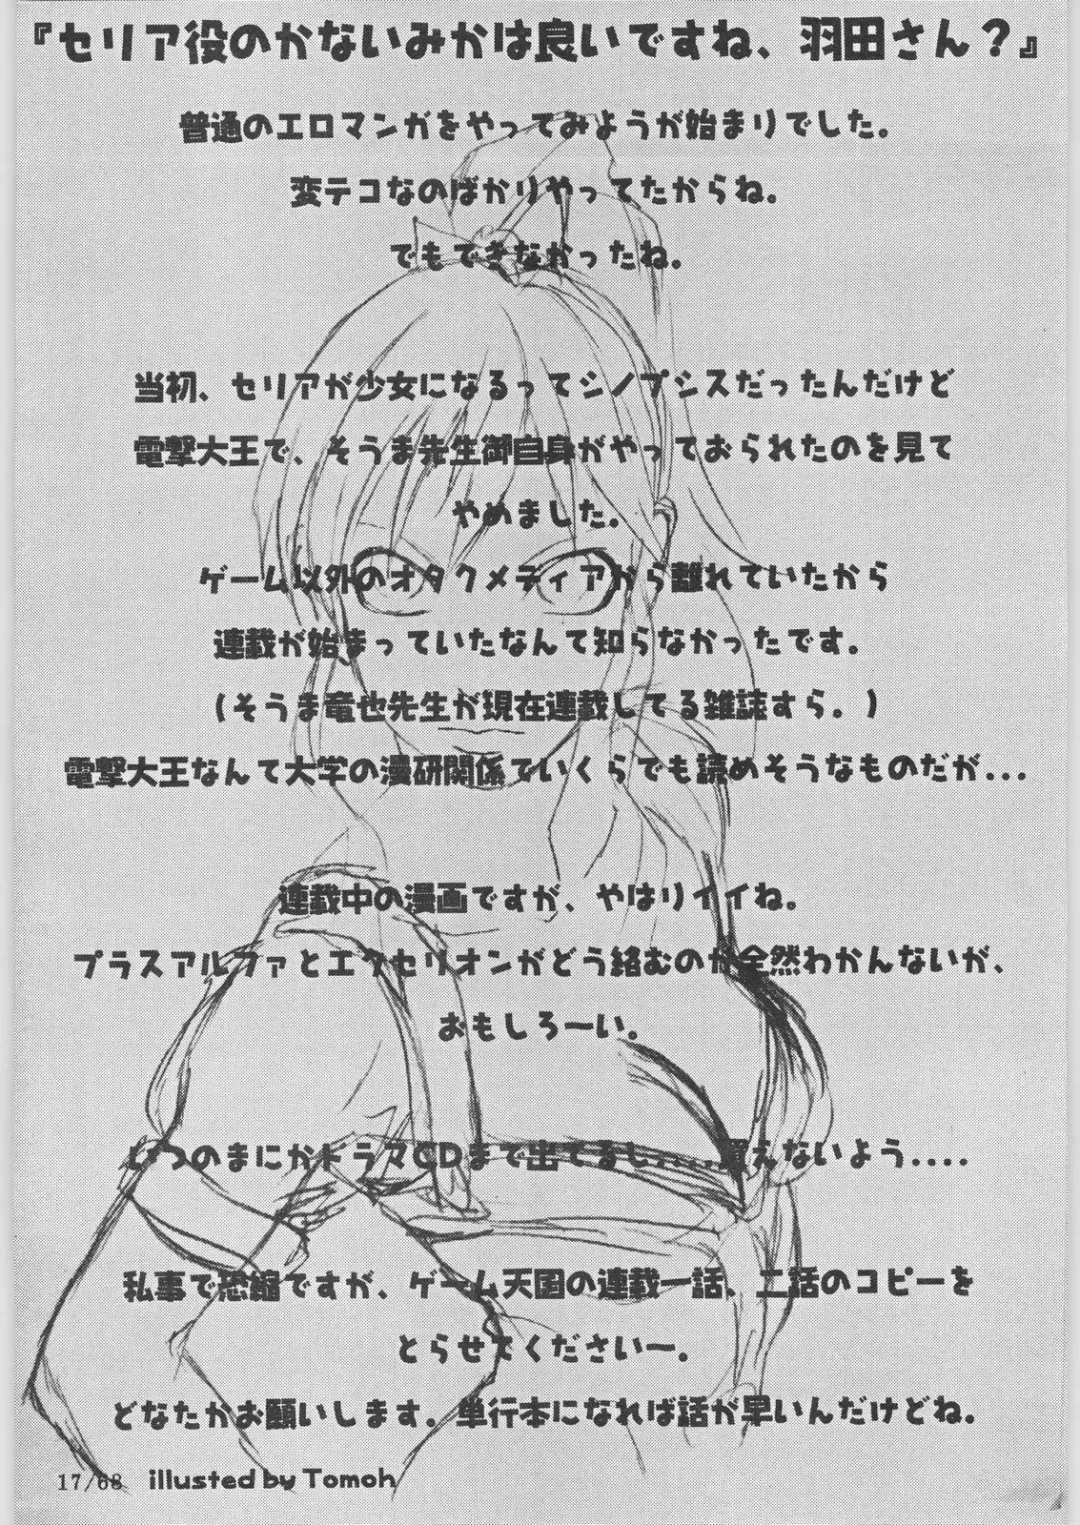 『セリア役のかないみかは良いですね、羽田さん？』
普通のエロマンガをやってみようが始まりでした。
変テコなのばかりやってたからね。
でもできなかったね。
当初、セリアが少女になるってシノプシスだったんだけど
電撃大王で、そうま先生御自身がやっておられたのを見て
やめました。
ゲーム以外のオタクメディアから離れていたから
連載が始まっていたなんて知らなかったです。
(そうま竜也先生が現在連載してる雑誌すら。)
電撃大王なんて大学の漫研関係でいくらでも読めそうなものだが...
連載中の漫画ですが、やはりイイね。
プラスアルファとエクセリオンがどう絡むのか全然わかんないが、
おもしろーい。
いつのまにかドラマCDまで出てるし....買えないよう....
私事で恐縮ですが、ゲーム天国の連載一話、二話のコピーを
とらせてくださいー。
どなたかお願いします。単行本になれば話が早いんだけどね。
17/68 illusted by Tomoh